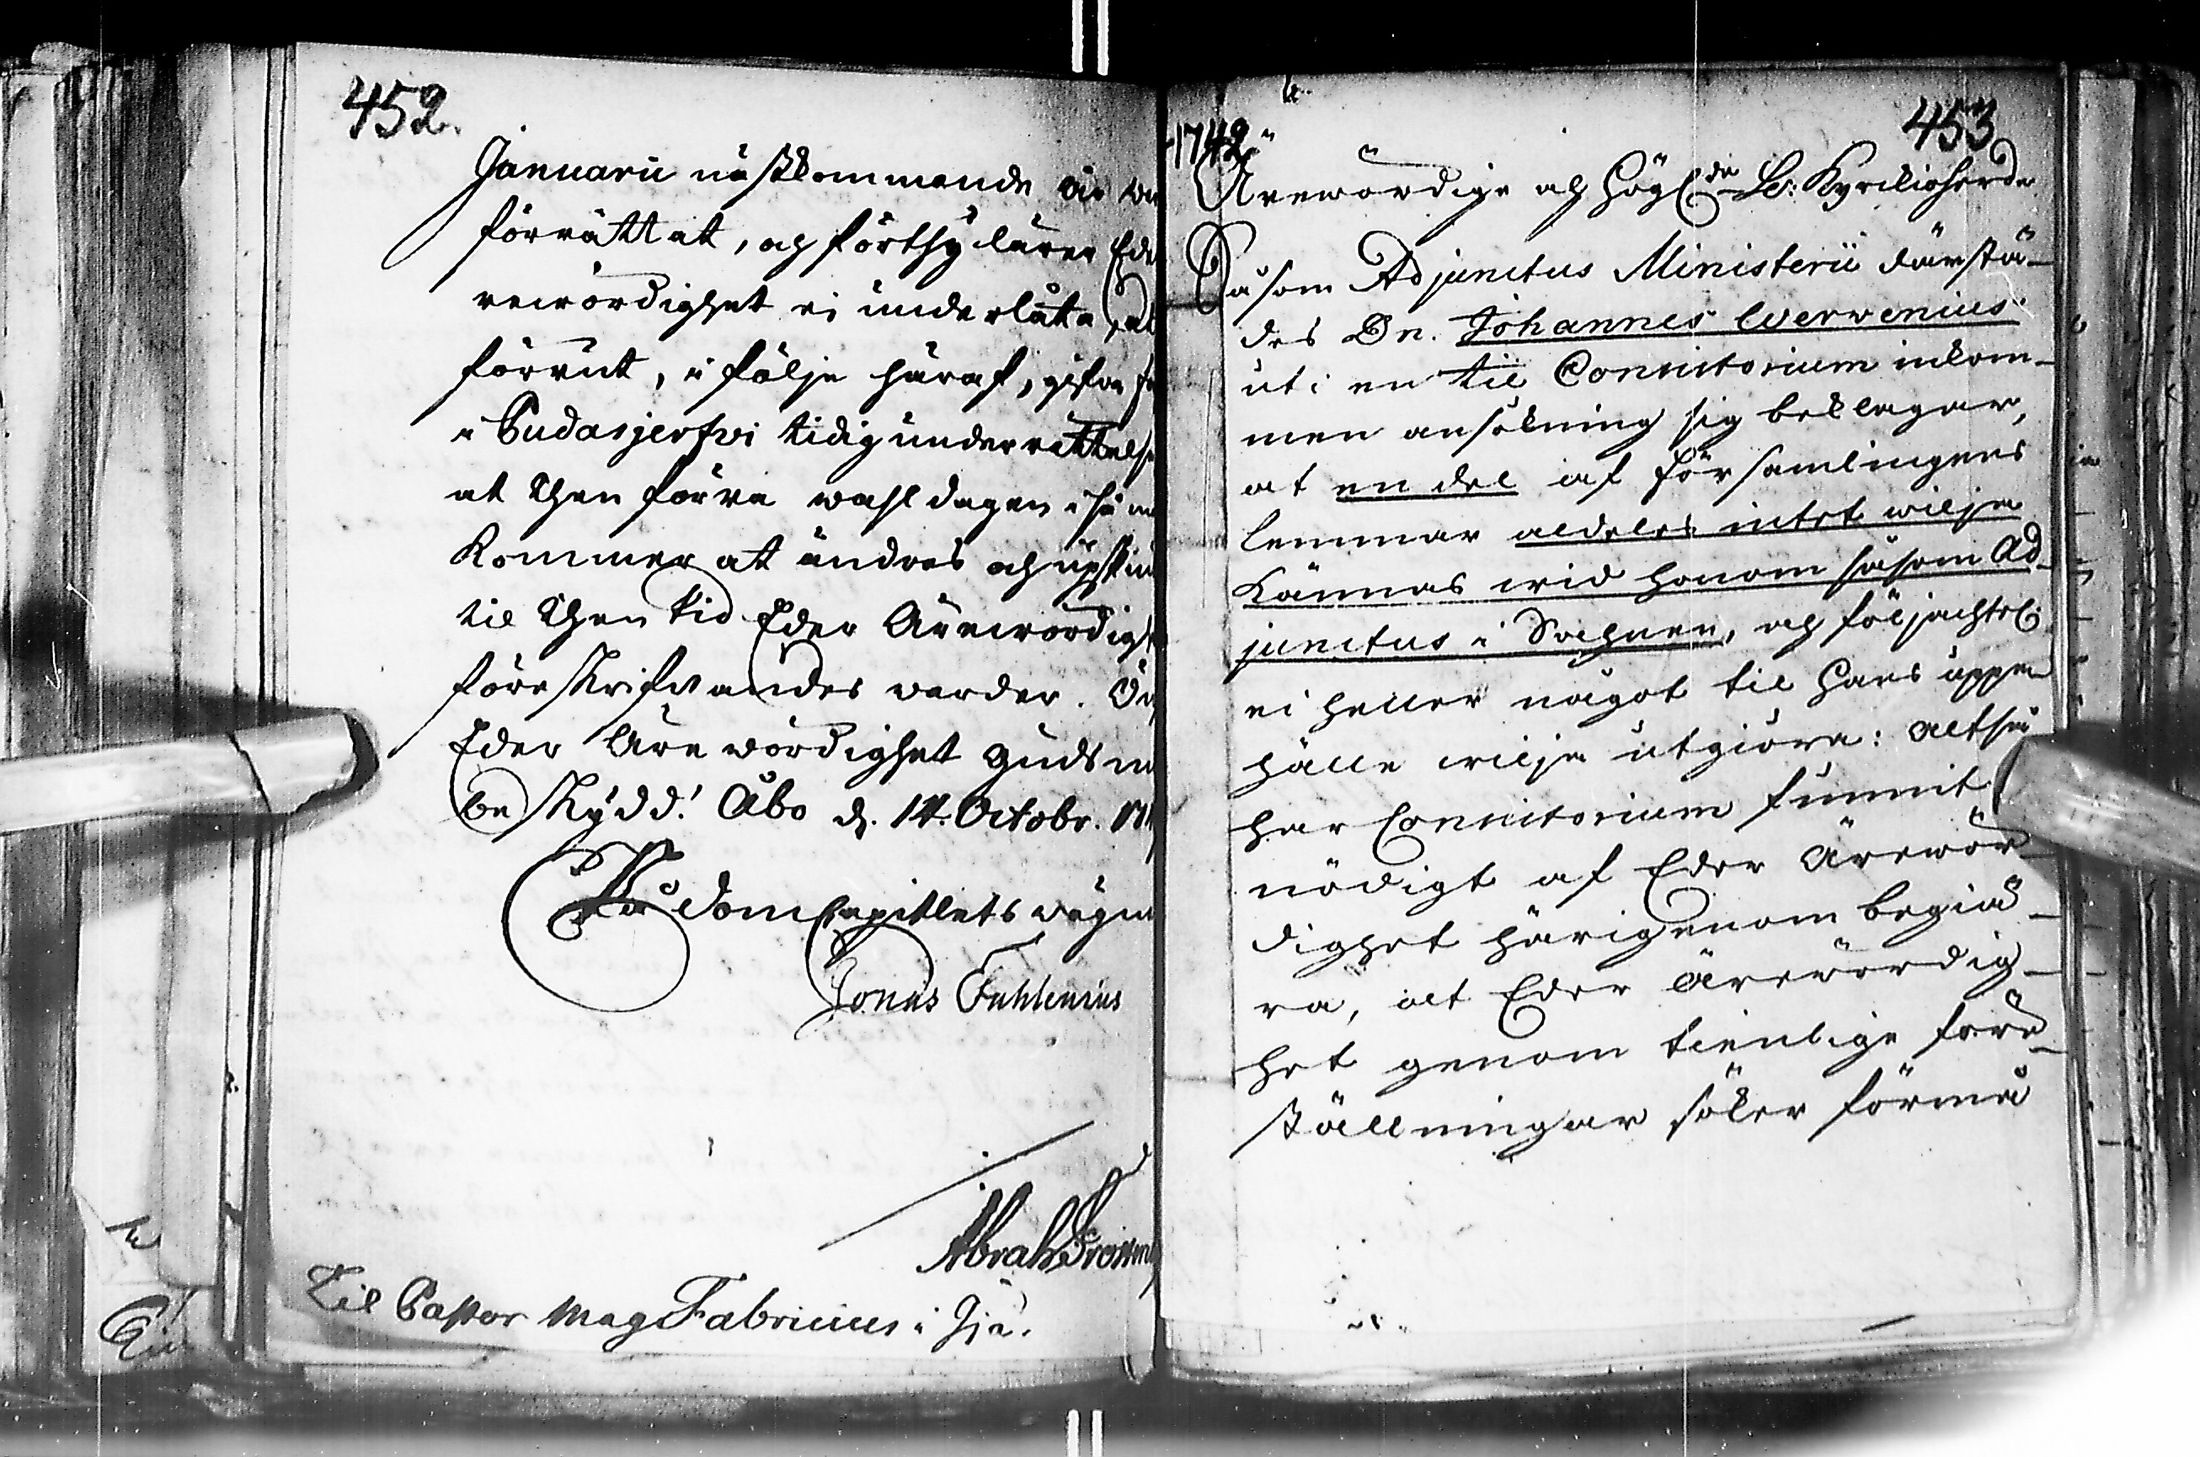 452.
Januarii nästkommande är
förrättat, och förthy lärer Eder
rewördighet ei underlåta, at
förrut, i följe häraf, gifva
i Pudasjerfvi tidig underrättelse
at then förra wahldagen i så
kommer at ändras och upskiu
til then tid Eder Ärewördigh
föreskrifvandes warder.
Eder Ärewördighet Guds
beskydd! Åbo d. 14. Octobr.
På Dom Capitlets wägnar
Jonas Fahlenius
Abrah
Til Pastor Mag Fabricius i Ijå.
453
1742
Ärewördige och Höglde Hr: Kyrckioherde
Såsom Adjunctus Ministerii därstä-
des Dn. Johannes Werwenius
uti en til Consistorium inkom-
men ansökning sig beklagar,
at en del af församlingens
lemmar aldeles intet wilja
kännas wid honom såsom Ad-
junctus i Sochnen, och följachtel:
ei heller något til Hans uppe
hälle wilja utgiöra: altså
har Consistorium funnit
nödigt af Eder Ärewör-
dighet härigenom begiä-
ra, at Eder Ärewördig-
het genom tienlige före-
ställningar söker förmå